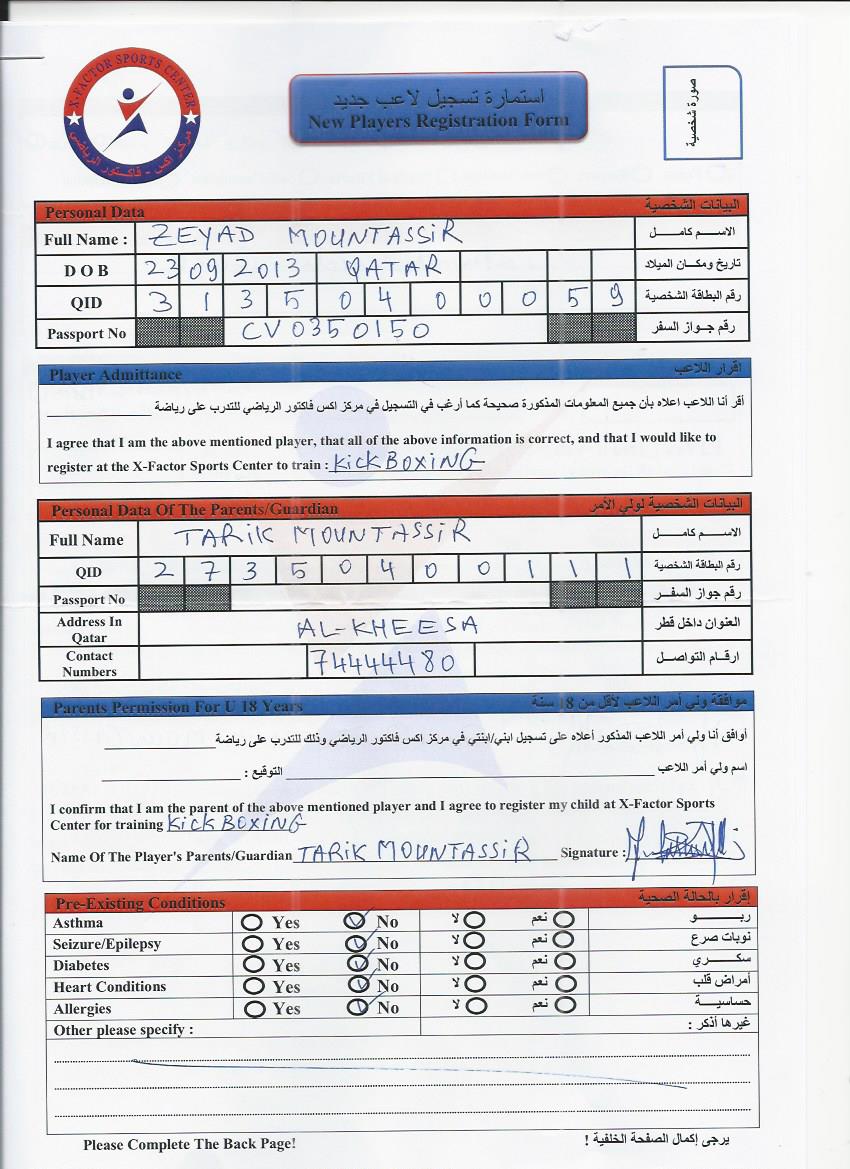 X-FACTOR SPORTS CENTER
مركز اكس - فاكتور الرياضي
استمارة تسجيل لاعب جديد
New Players Registration Form
صورة شخصية
Personal Data البيانات الشخصية
Full Name : ZEYAD MOUNTASSIR الاسم كامل
D O B 23 09 2013 QATAR تاريخ ومكان الميلاد
QID 3 1 3 5 0 4 0 0 0 5 9 رقم البطاقة الشخصية
Passport No CV0350150 رقم جواز السفر
Player Admittance اقرار اللاعب
أقر أنا اللاعب اعلاه بأن جميع المعلومات المذكورة صحيحة كما أرغب في التسجيل في مركز اكس فاكتور الرياضي للتدرب على رياضة
I agree that I am the above mentioned player, that all of the above information is correct, and that I would like to
register at the X-Factor Sports Center to train : Kick BOXING
Personal Data Of The Parents/Guardian البيانات الشخصية لولي الأمر
Full Name TARIK MOUNTASSIR الاسم كامل
QID 2 7 3 5 0 4 0 0 1 1 1 رقم البطاقة الشخصية
Passport No رقم جواز السفر
Address In Qatar AL-KHEESA العنوان داخل قطر
Contact Numbers 74444480 ارقام التواصل
Parents Permission For U 18 Years موافقة ولي أمر اللاعب لأقل من 18 سنة
أوافق أنا ولي أمر اللاعب المذكور أعلاه على تسجيل ابني/ابنتي في مركز اكس فاكتور الرياضي وذلك للتدرب على رياضة
اسم ولي أمر اللاعب التوقيع :
I confirm that I am the parent of the above mentioned player and I agree to register my child at X-Factor Sports
Center for training Kick BOXING
Name Of The Player's Parents/Guardian TARIK MOUNTASSIR Signature :
Pre-Existing Conditions إقرار بالحالة الصحية
Asthma Yes No لا نعم ربو
Seizure/Epilepsy Yes No لا نعم نوبات صرع
Diabetes Yes No لا نعم سكري
Heart Conditions Yes No لا نعم أمراض قلب
Allergies Yes No لا نعم حساسية
Other please specify : غيرها أذكر :
Please Complete The Back Page! يرجى إكمال الصفحة الخلفية !